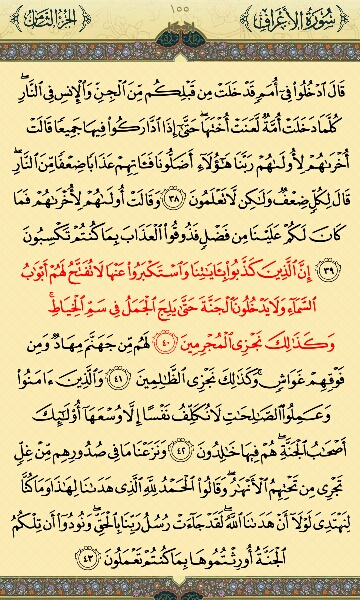 سُورَةُ الأَعۡرَافِ ١٥٥ الجُزءُ الثَّامِنُ
قَالَ ٱدۡخُلُواْ فِيٓ أُمَمٖ قَدۡ خَلَتۡ مِن قَبۡلِكُم مِّنَ ٱلۡجِنِّ وَٱلۡإِنسِ فِي ٱلنَّارِۖ
كُلَّمَا دَخَلَتۡ أُمَّةٞ لَّعَنَتۡ أُخۡتَهَاۖ حَتَّىٰٓ إِذَا ٱدَّارَكُواْ فِيهَا جَمِيعٗا قَالَتۡ
أُخۡرَىٰهُمۡ لِأُولَىٰهُمۡ رَبَّنَا هَٰٓؤُلَآءِ أَضَلُّونَا فَـَٔاتِهِمۡ عَذَابٗا ضِعۡفٗا مِّنَ ٱلنَّارِۖ
قَالَ لِكُلّٖ ضِعۡفٞ وَلَٰكِن لَّا تَعۡلَمُونَ ٣٨ وَقَالَتۡ أُولَىٰهُمۡ لِأُخۡرَىٰهُمۡ فَمَا
كَانَ لَكُمۡ عَلَيۡنَا مِن فَضۡلٖ فَذُوقُواْ ٱلۡعَذَابَ بِمَا كُنتُمۡ تَكۡسِبُونَ
٣٩ إِنَّ ٱلَّذِينَ كَذَّبُواْ بِـَٔايَٰتِنَا وَٱسۡتَكۡبَرُواْ عَنۡهَا لَا تُفَتَّحُ لَهُمۡ أَبۡوَٰبُ
ٱلسَّمَآءِ وَلَا يَدۡخُلُونَ ٱلۡجَنَّةَ حَتَّىٰ يَلِجَ ٱلۡجَمَلُ فِي سَمِّ ٱلۡخِيَاطِۚ
وَكَذَٰلِكَ نَجۡزِي ٱلۡمُجۡرِمِينَ ٤٠ لَهُم مِّن جَهَنَّمَ مِهَادٞ وَمِن
فَوۡقِهِمۡ غَوَاشٖۚ وَكَذَٰلِكَ نَجۡزِي ٱلظَّٰلِمِينَ ٤١ وَٱلَّذِينَ ءَامَنُواْ
وَعَمِلُواْ ٱلصَّٰلِحَٰتِ لَا نُكَلِّفُ نَفۡسًا إِلَّا وُسۡعَهَآ أُوْلَٰٓئِكَ
أَصۡحَٰبُ ٱلۡجَنَّةِۖ هُمۡ فِيهَا خَٰلِدُونَ ٤٢ وَنَزَعۡنَا مَا فِي صُدُورِهِم مِّنۡ غِلّٖ
تَجۡرِي مِن تَحۡتِهِمُ ٱلۡأَنۡهَٰرُۖ وَقَالُواْ ٱلۡحَمۡدُ لِلَّهِ ٱلَّذِي هَدَىٰنَا لِهَٰذَا وَمَا كُنَّا
لِنَهۡتَدِيَ لَوۡلَآ أَنۡ هَدَىٰنَا ٱللَّهُۖ لَقَدۡ جَآءَتۡ رُسُلُ رَبِّنَا بِٱلۡحَقِّۖ وَنُودُوٓاْ أَن تِلۡكُمُ
ٱلۡجَنَّةُ أُورِثۡتُمُوهَا بِمَا كُنتُمۡ تَعۡمَلُونَ ٤٣